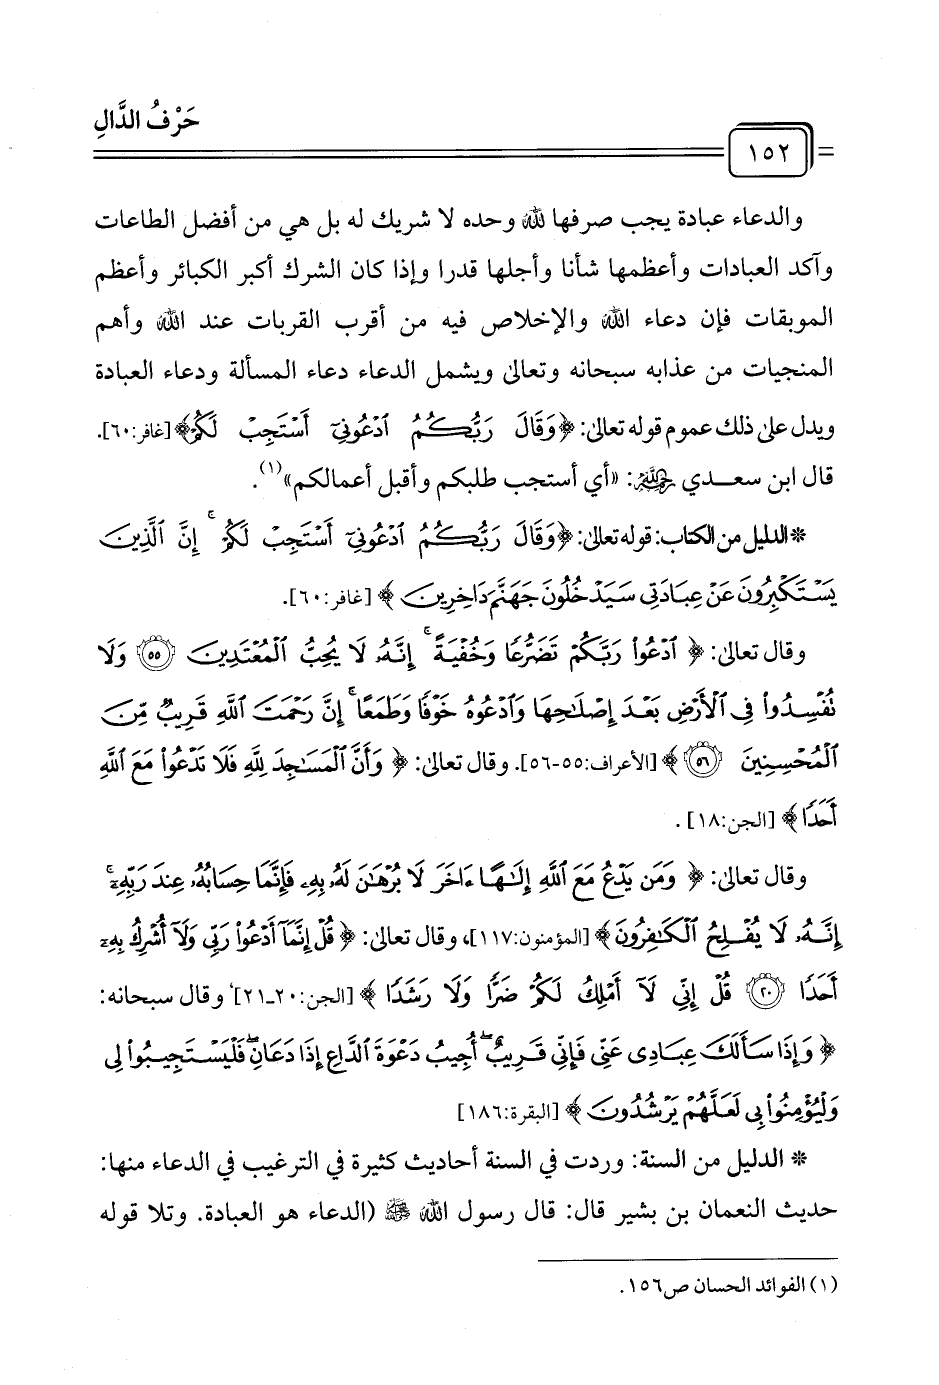 حَرْفُ الدَّالِ
١٥٢
والدعاء عبادة يجب صرفها لله وحده لا شريك له بل هي من أفضل الطاعات
وآكد العبادات وأعظمها شأنا وأجلها قدرا وإذا كان الشرك أكبر الكبائر وأعظم
الموبقات فإن دعاء الله والإخلاص فيه من أقرب القربات عند الله وأهم
المنجيات من عذابه سبحانه وتعالى ويشمل الدعاء دعاء المسألة ودعاء العبادة
ويدل على ذلك عموم قوله تعالى: ﴿وَقَالَ رَبُّكُمُ ٱدْعُونِيٓ أَسْتَجِبْ لَكُمْ﴾ [غافر:٦٠].
قال ابن سعدي رحمه الله: «أي أستجب طلبكم وأقبل أعمالكم»(١).
* الدليل من الكتاب: قوله تعالى: ﴿وَقَالَ رَبُّكُمُ ٱدْعُونِيٓ أَسْتَجِبْ لَكُمْۚ إِنَّ ٱلَّذِينَ
يَسْتَكْبِرُونَ عَنْ عِبَادَتِي سَيَدْخُلُونَ جَهَنَّمَ دَاخِرِينَ﴾ [غافر:٦٠].
وقال تعالى: ﴿ٱدْعُوا۟ رَبَّكُمْ تَضَرُّعًا وَخُفْيَةًۚ إِنَّهُۥ لَا يُحِبُّ ٱلْمُعْتَدِينَ ٥٥ وَلَا
تُفْسِدُوا۟ فِى ٱلْأَرْضِ بَعْدَ إِصْلَٰحِهَا وَٱدْعُوهُ خَوْفًا وَطَمَعًاۚ إِنَّ رَحْمَتَ ٱللَّهِ قَرِيبٌ مِّنَ
ٱلْمُحْسِنِينَ ٥٦﴾ [الأعراف:٥٥-٥٦]. وقال تعالى: ﴿وَأَنَّ ٱلْمَسَٰجِدَ لِلَّهِ فَلَا تَدْعُوا۟ مَعَ ٱللَّهِ
أَحَدًا﴾ [الجن:١٨].
وقال تعالى: ﴿وَمَن يَدْعُ مَعَ ٱللَّهِ إِلَٰهًا ءَاخَرَ لَا بُرْهَٰنَ لَهُۥ بِهِۦ فَإِنَّمَا حِسَابُهُۥ عِندَ رَبِّهِۦٓۚ
إِنَّهُۥ لَا يُفْلِحُ ٱلْكَٰفِرُونَ﴾ [المؤمنون:١١٧]، وقال تعالى: ﴿قُلْ إِنَّمَآ أَدْعُوا۟ رَبِّى وَلَآ أُشْرِكُ بِهِۦٓ
أَحَدًا ٢٠ قُلْ إِنِّى لَآ أَمْلِكُ لَكُمْ ضَرًّا وَلَا رَشَدًا﴾ [الجن:٢٠-٢١]، وقال سبحانه:
﴿وَإِذَا سَأَلَكَ عِبَادِى عَنِّى فَإِنِّى قَرِيبٌۖ أُجِيبُ دَعْوَةَ ٱلدَّاعِ إِذَا دَعَانِۖ فَلْيَسْتَجِيبُوا۟ لِى
وَلْيُؤْمِنُوا۟ بِى لَعَلَّهُمْ يَرْشُدُونَ﴾ [البقرة:١٨٦]
* الدليل من السنة: وردت في السنة أحاديث كثيرة في الترغيب في الدعاء منها:
حديث النعمان بن بشير قال: قال رسول الله ﷺ (الدعاء هو العبادة. وتلا قوله
(١) الفوائد الحسان ص١٥٦.